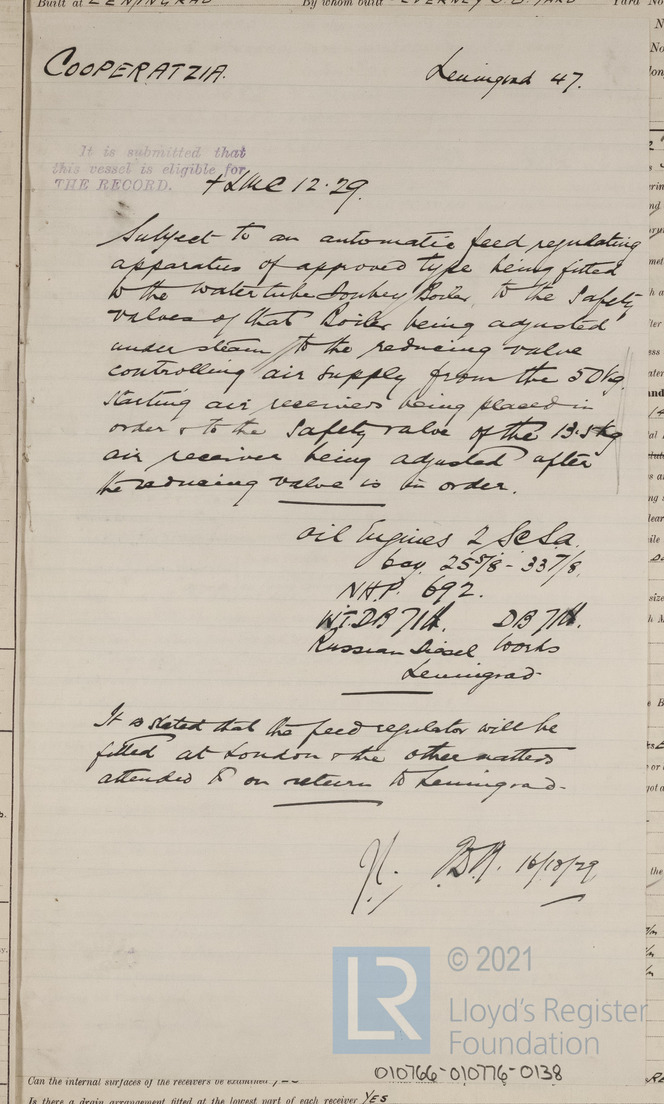 Built at LENINGRAD By whom built Yard No
COOPERATZIA. Leningrad 47.
It is submitted that
this vessel is eligible for
THE RECORD. + LMC 12.29.
Subject to an automatic feed regulating
apparatus of approved type being fitted
to the water tube Donkey Boiler, to the Safety
valves of that Boiler being adjusted
under steam, to the reducing valve
controlling air supply from the 50 kg.
starting air receivers being placed in
order & to the Safety valve of the 13.5 kg
air receiver being adjusted after
the reducing valve is in order.
Oil Engines 2 S.C.S.A.
6cy. 25 5/8 - 33 7/8.
NHP. 692.
WTDB 71 lb. DB 71 lb.
Russian Diesel Works
Leningrad
It is stated that the feed regulator will be
fitted at London & the other matters
attended to on return to Leningrad.
© 2021
LR
Lloyd's Register
Foundation
010766-010776-0138
Can the internal surfaces of the receivers be examined YES
Is there a drain arrangement fitted at the lowest part of each receiver YES